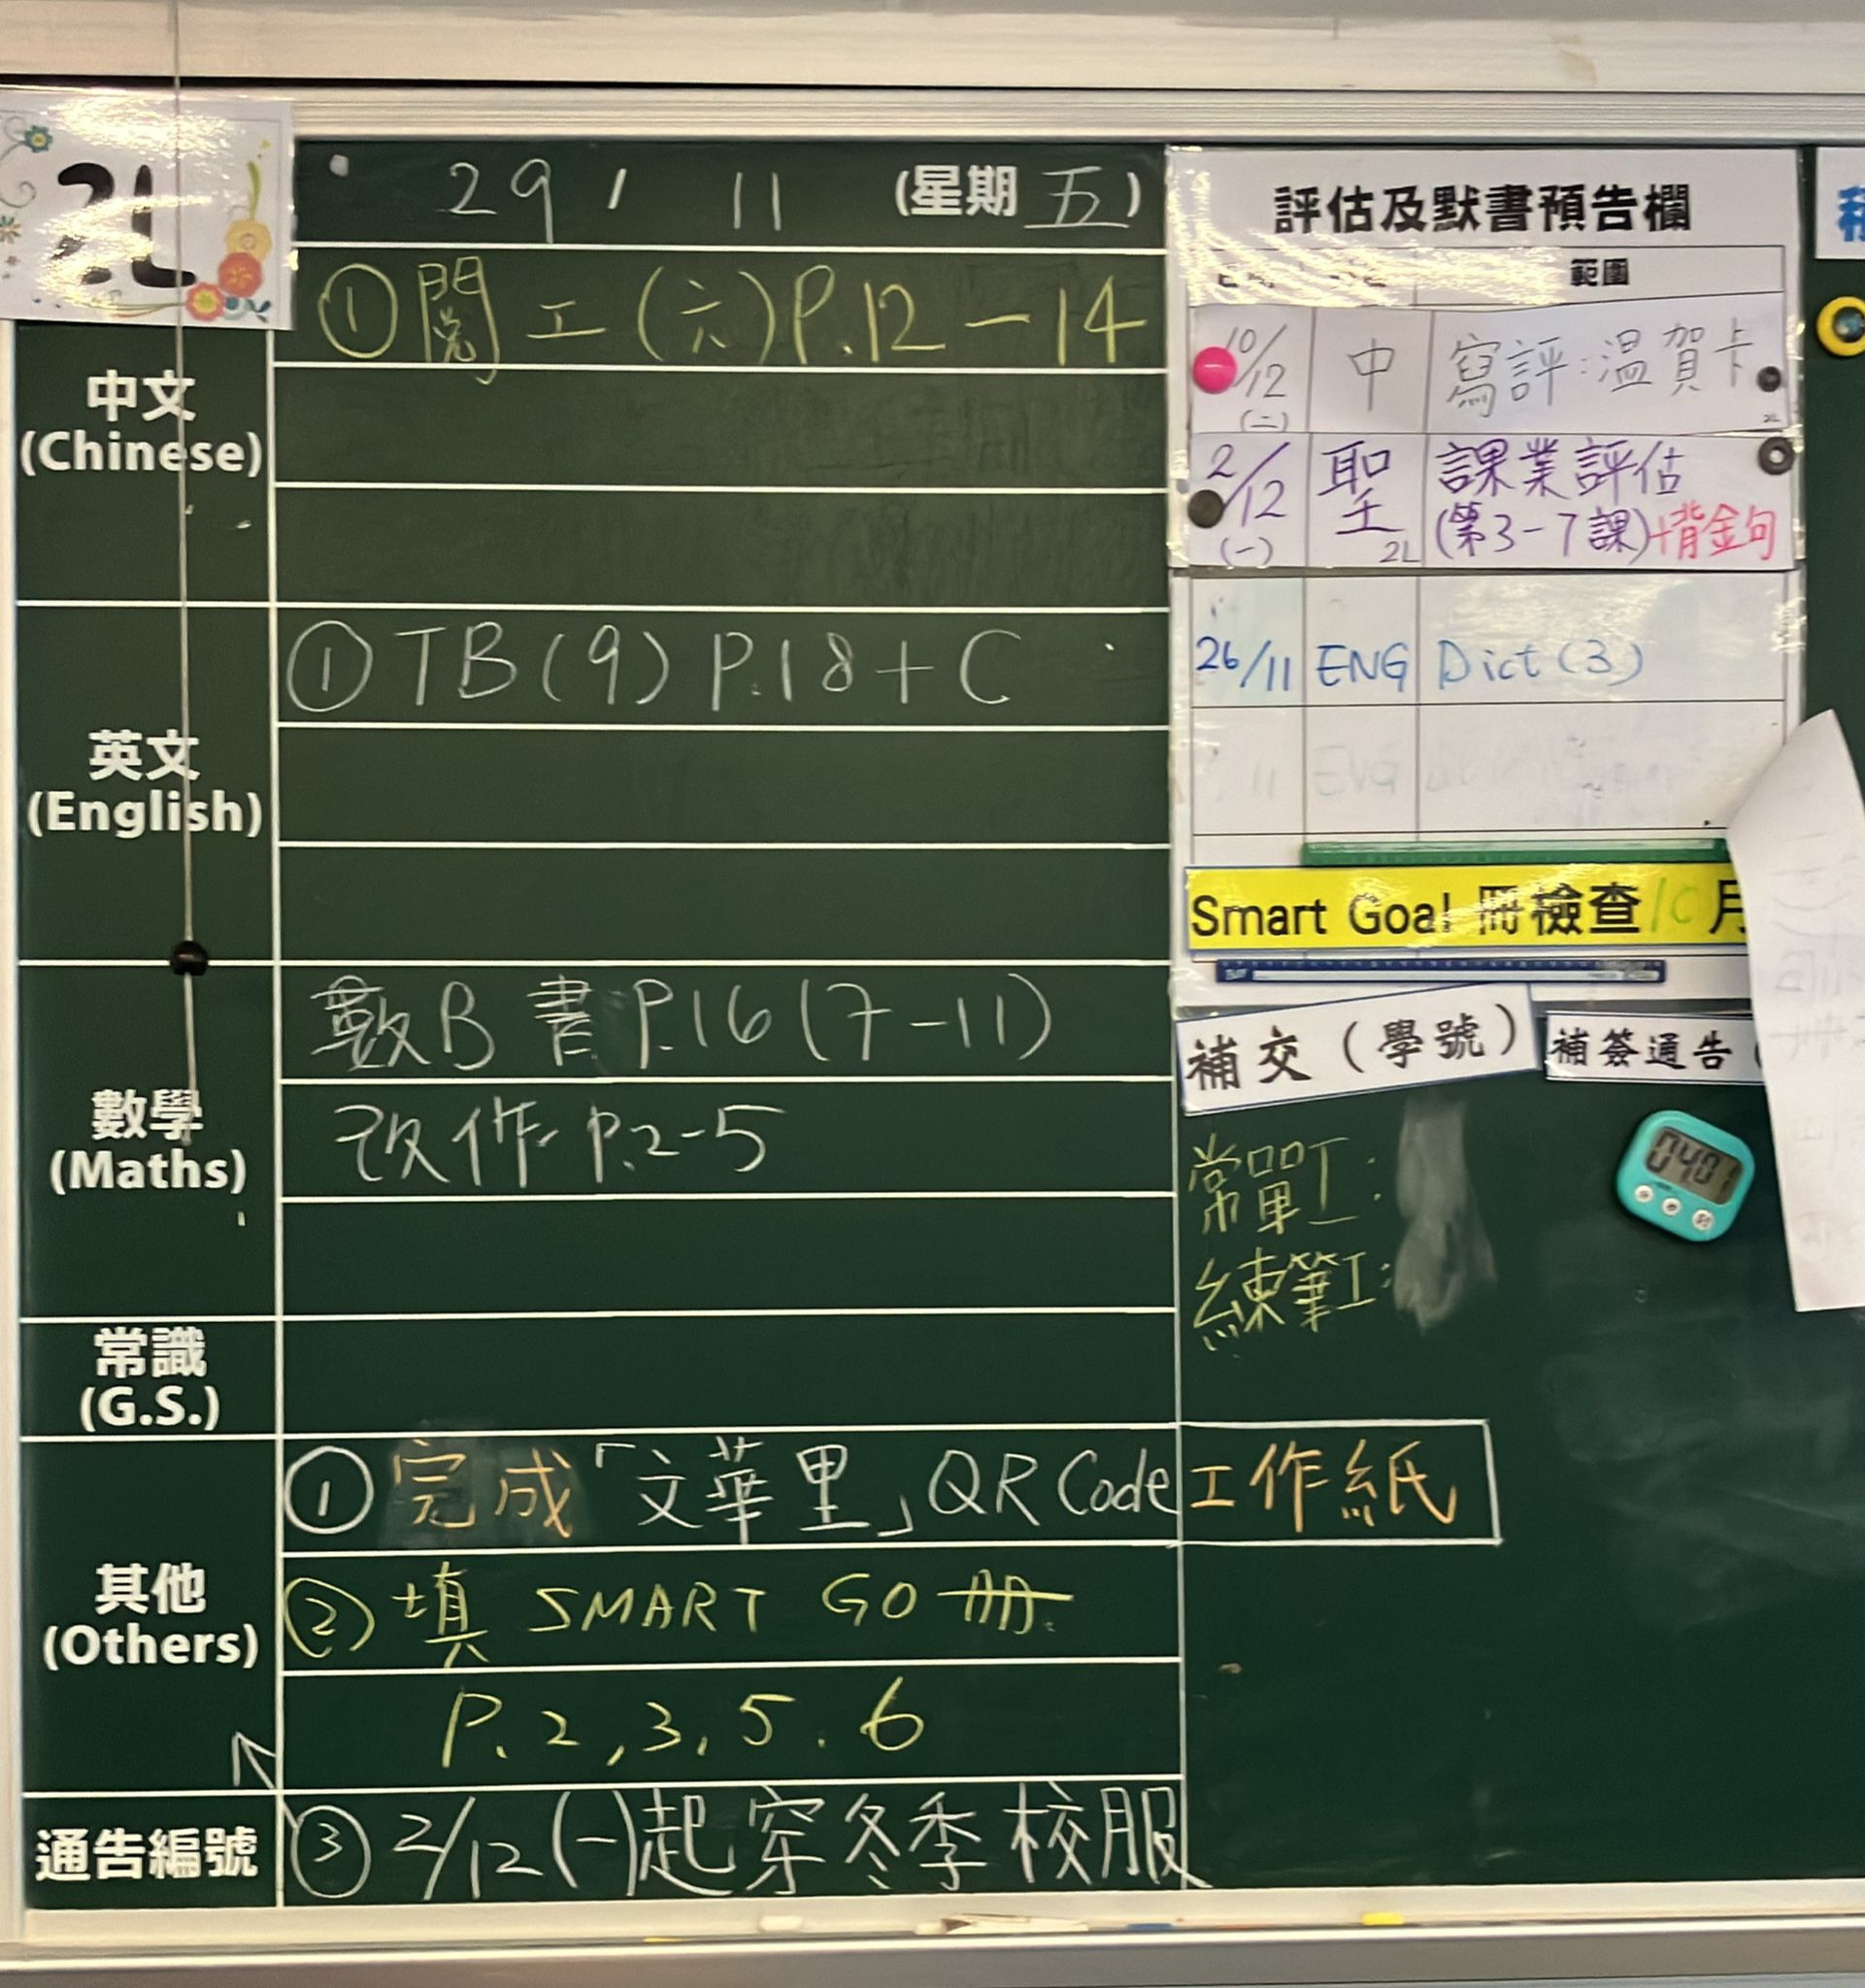 2L
29 / 11 (星期 五)
中文
(Chinese)
① 閱工(六)P.12－14
英文
(English)
① TB(9) P.18 + C
數學
(Maths)
數B 書 P.16 (7-11)
改作 P.2-5
常識
(G.S.)
其他
(Others)
① 完成「文華里」QR Code 工作紙
② 填 SMART GO 冊
P. 2, 3, 5. 6
通告編號
③ 2/12 (一)起穿冬季校服
評估及默書預告欄
範圍
10/12 (二) 中 寫評:溫賀卡
2L
2/12 (一) 聖 2L 課業評估
(第3-7課)+背金句
26/11 ENG Dict (3)
ENG
Smart Goal 冊檢查 10月
補交(學號)
補簽通告(
常單工:
練筆工:
0401